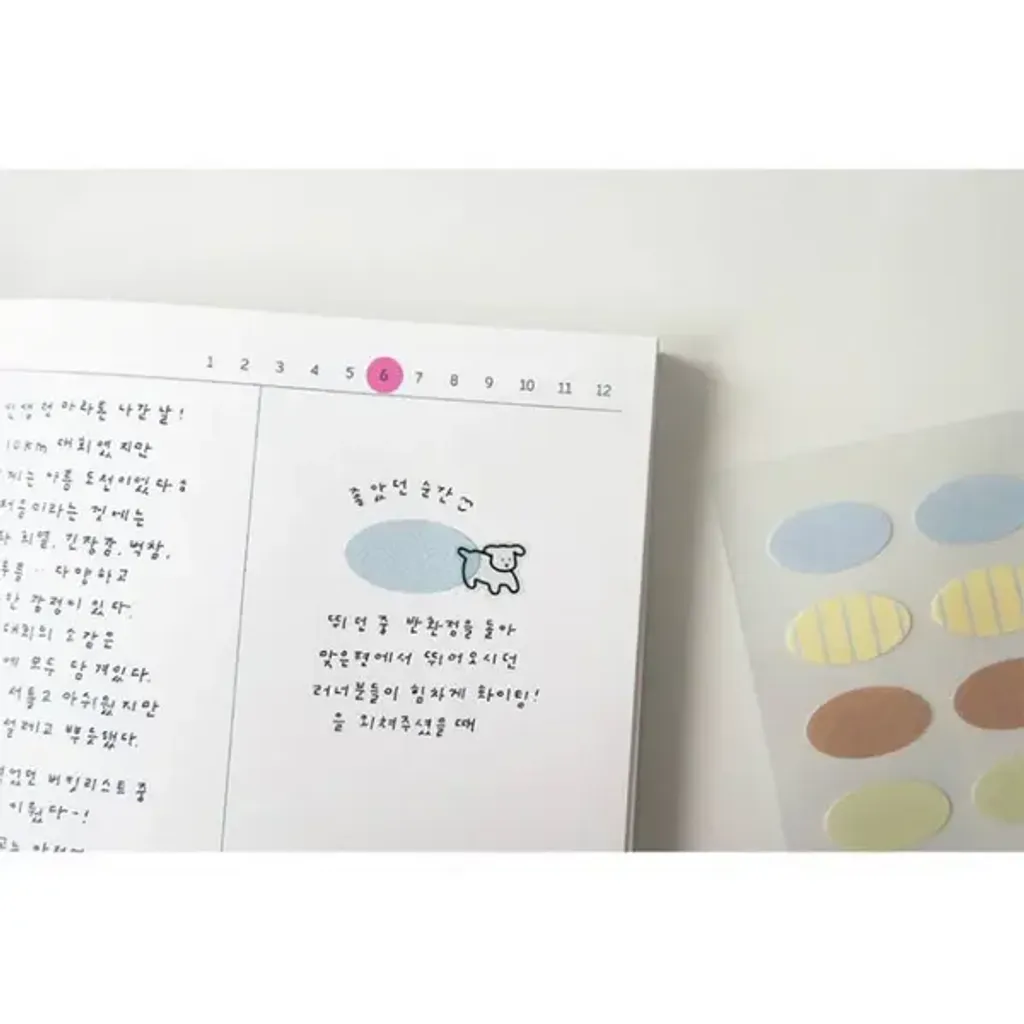 1 2 3 4 5 6 7 8 9 10 11 12
마라톤 나간 날!
10km 대회였지만
아름 도전이었다
이라는 것에는
희열, 긴장감, 벅참,
다양하고
감정이 있다.
대회의 소감은
에 모두 담겨있다.
서툴고 아쉬웠지만
설레고 뿌듯했다.
버킷리스트 중
좋았던 순간
뛰던 중 반환점을 돌아
맞은편에서 뛰어오시던
러너분들이 힘차게 화이팅!
을 외쳐주셨을 때